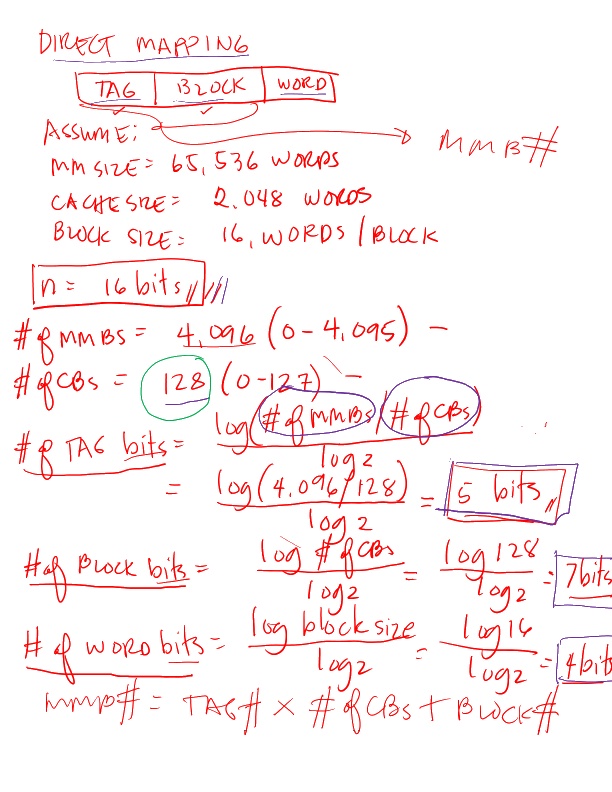 DIRECT MAPPING
TAG BLOCK WORD
ASSUME:
MMB#
MM SIZE = 65,536 WORDS
CACHE SIZE = 2,048 WORDS
BLOCK SIZE = 16, WORDS / BLOCK
n = 16 bits
# of MMBS = 4,096 (0-4,095) -
# of CBs = 128 (0-127) -
# of TAG bits = log(# of MMBs / # of CBs) / log 2
= log(4,096/128) / log 2 = 5 bits
# of BLOCK bits = log # of CBs / log 2 = log 128 / log 2 = 7 bits
# of WORD bits = log block size / log 2 = log 16 / log 2 = 4 bits
MMB# = TAG# × # of CBs + BLOCK#